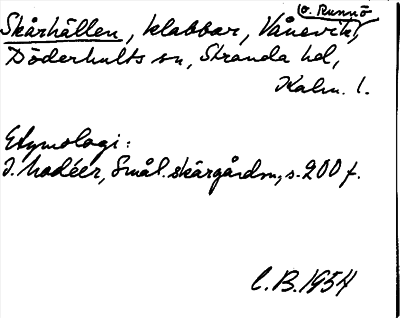 o. Runnö
Skårhällen, klabbar, Vånevik,
Döderhults sn, Stranda hd,
Kalm. l.
Etymologi:
I. Modéer, Smål. skärgårdsn, s. 200 f.
C.B. 1954